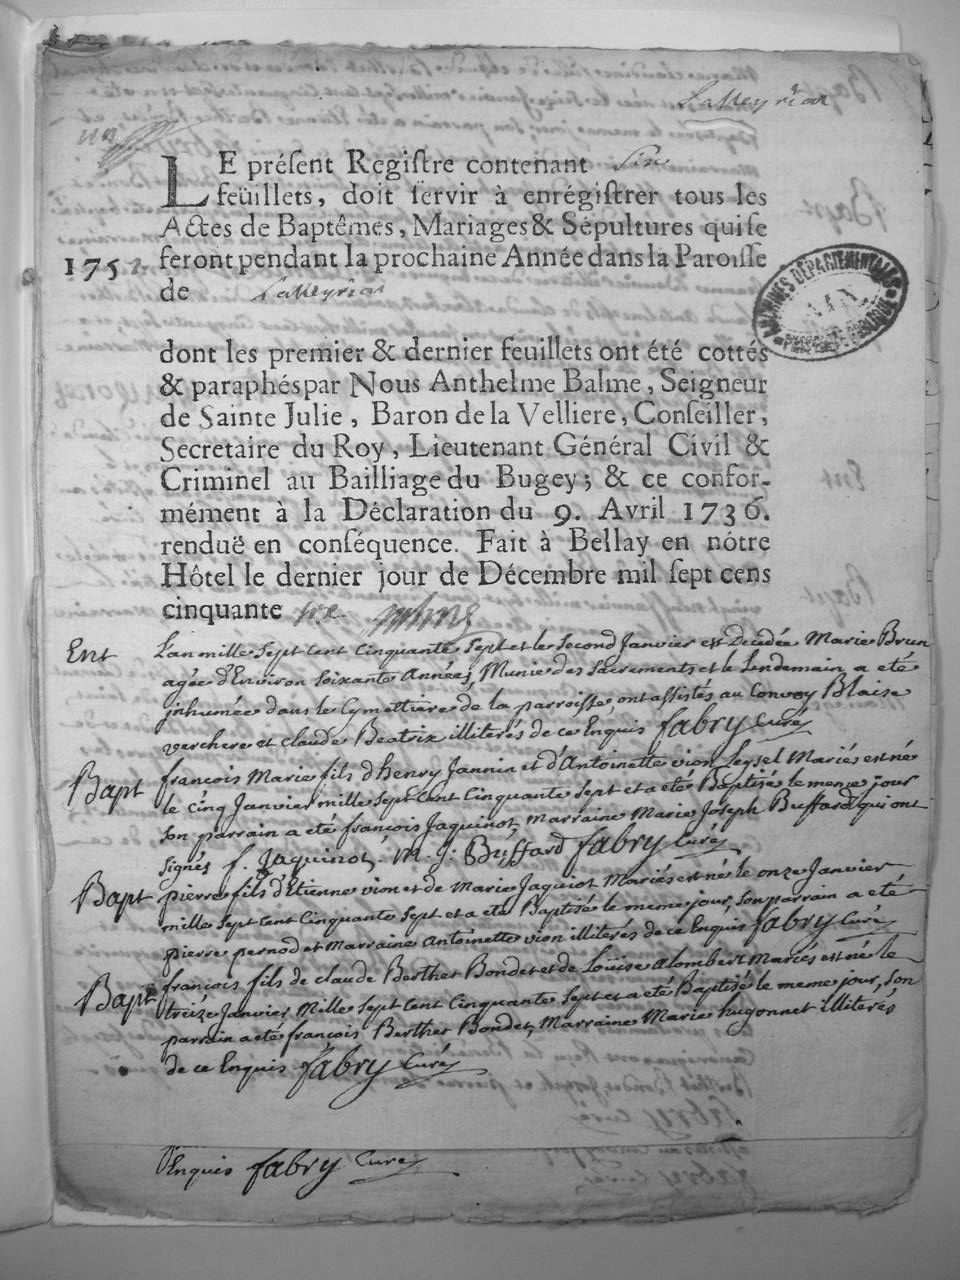 Lalleyriat
LE présent Registre contenant Six
feüillets, doit servir à enrégistrer tous les
Actes de Baptêmes, Mariages & Sépultures qui se
1757 feront pendant la prochaine Année dans la Paroisse
de Lalleyriat
dont les premier & dernier feuillets ont été cottés
& paraphés par Nous Anthelme Balme, Seigneur
de Sainte Julie, Baron de la Velliere, Conseiller,
Secretaire du Roy, Lieutenant Général Civil &
Criminel au Bailliage du Bugey; & ce confor-
mément à la Déclaration du 9. Avril 1736.
renduë en conséquence. Fait à Bellay en nôtre
Hôtel le dernier jour de Décembre mil sept cens
cinquante six
Ent L'an mille Sept Cent Cinquante Sept et le Second Janvier est Decedée Marie Brun
agée d'Environ Soixante Années, Munie des Sacrements et le Lendemain a eté
jnhumée dans le Cymettiere de la parroisse, ont assistés au Convoy Blaise
verchere et claude Beatrix illiterés de ce Enquis fabry Curé
Bapt françois Marie fils d'henry Jannin et d'Antoinette vion Leysel Mariés est né
le cinq Janvier mille Sept Cent Cinquante Sept et a eté Baptisé le meme jour
Son parrain a eté françois Jaquinot, Marraine Marie Joseph Buffard qui ont
signés f. Jaquinot. M. j. Buffard fabry Curé
Bapt pierre fils d'Etienne vion et de Marie Jaquiot Mariés est né le onze Janvier
mille Sept Cent Cinquante Sept et a eté Baptisé le meme jour, Son parrain a eté
pierre pernod et Marraine Antoinette vion illiterés de ce Enquis fabry Curé
Bapt françois fils de claude Berthet Bondet et de Loüise alombert Mariés est né le
treize Janvier Mille Sept Cent Cinquante Sept et a eté Baptisé le meme jour, Son
parrain a eté françois Berthet Bondet, Marraine Marie hugonnet illiterés
de ce Enquis fabry Curé
Enquis fabry Curé
ARCHIVES DÉPARTEMENTALES
AIN